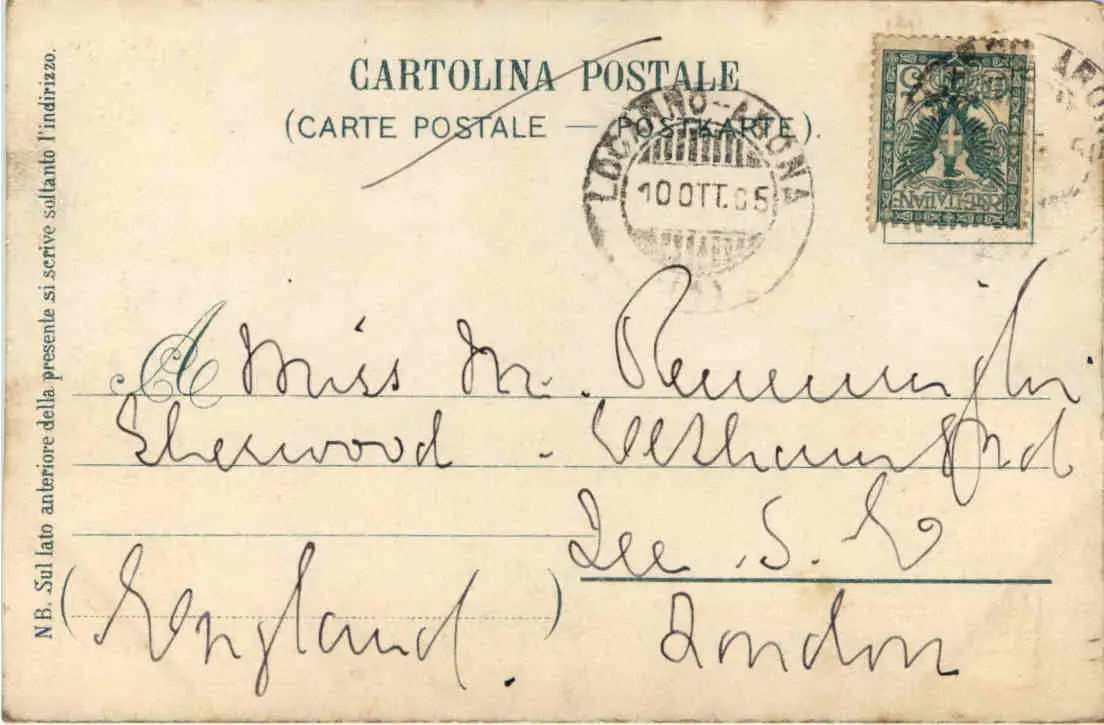 CARTOLINA POSTALE
(CARTE POSTALE — POSTKARTE).
LOCARNO--ARONA
10 OTT. 05
ARON
POSTE ITALIANE
N B. Sul lato anteriore della presente si scrive soltanto l'indirizzo.
A Miss M.
Sherwood -
Lee. S.E
London
(England.)